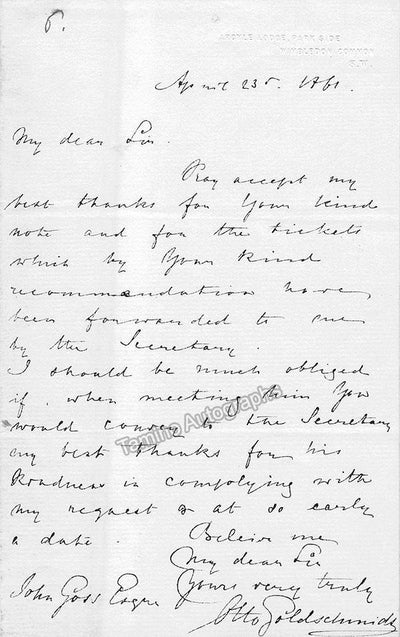 6.
ARGYLE LODGE, PARK SIDE
WIMBLEDON COMMON
S.W.
April 23r. 1861.
My dear Sir.
Pray accept my
best thanks for Your kind
note and for the tickets
which by Your kind
recommendation have
been forwarded to me
by the Secretary.
I should be much obliged
if, when meeting him You
would convey to the Secretary
my best thanks for his
kindness in complying with
my request & at so early
a date.
Believe me
My dear Sir
Yours very truly
Otto Goldschmidt
John Goss Esqre
Tamino Autographs